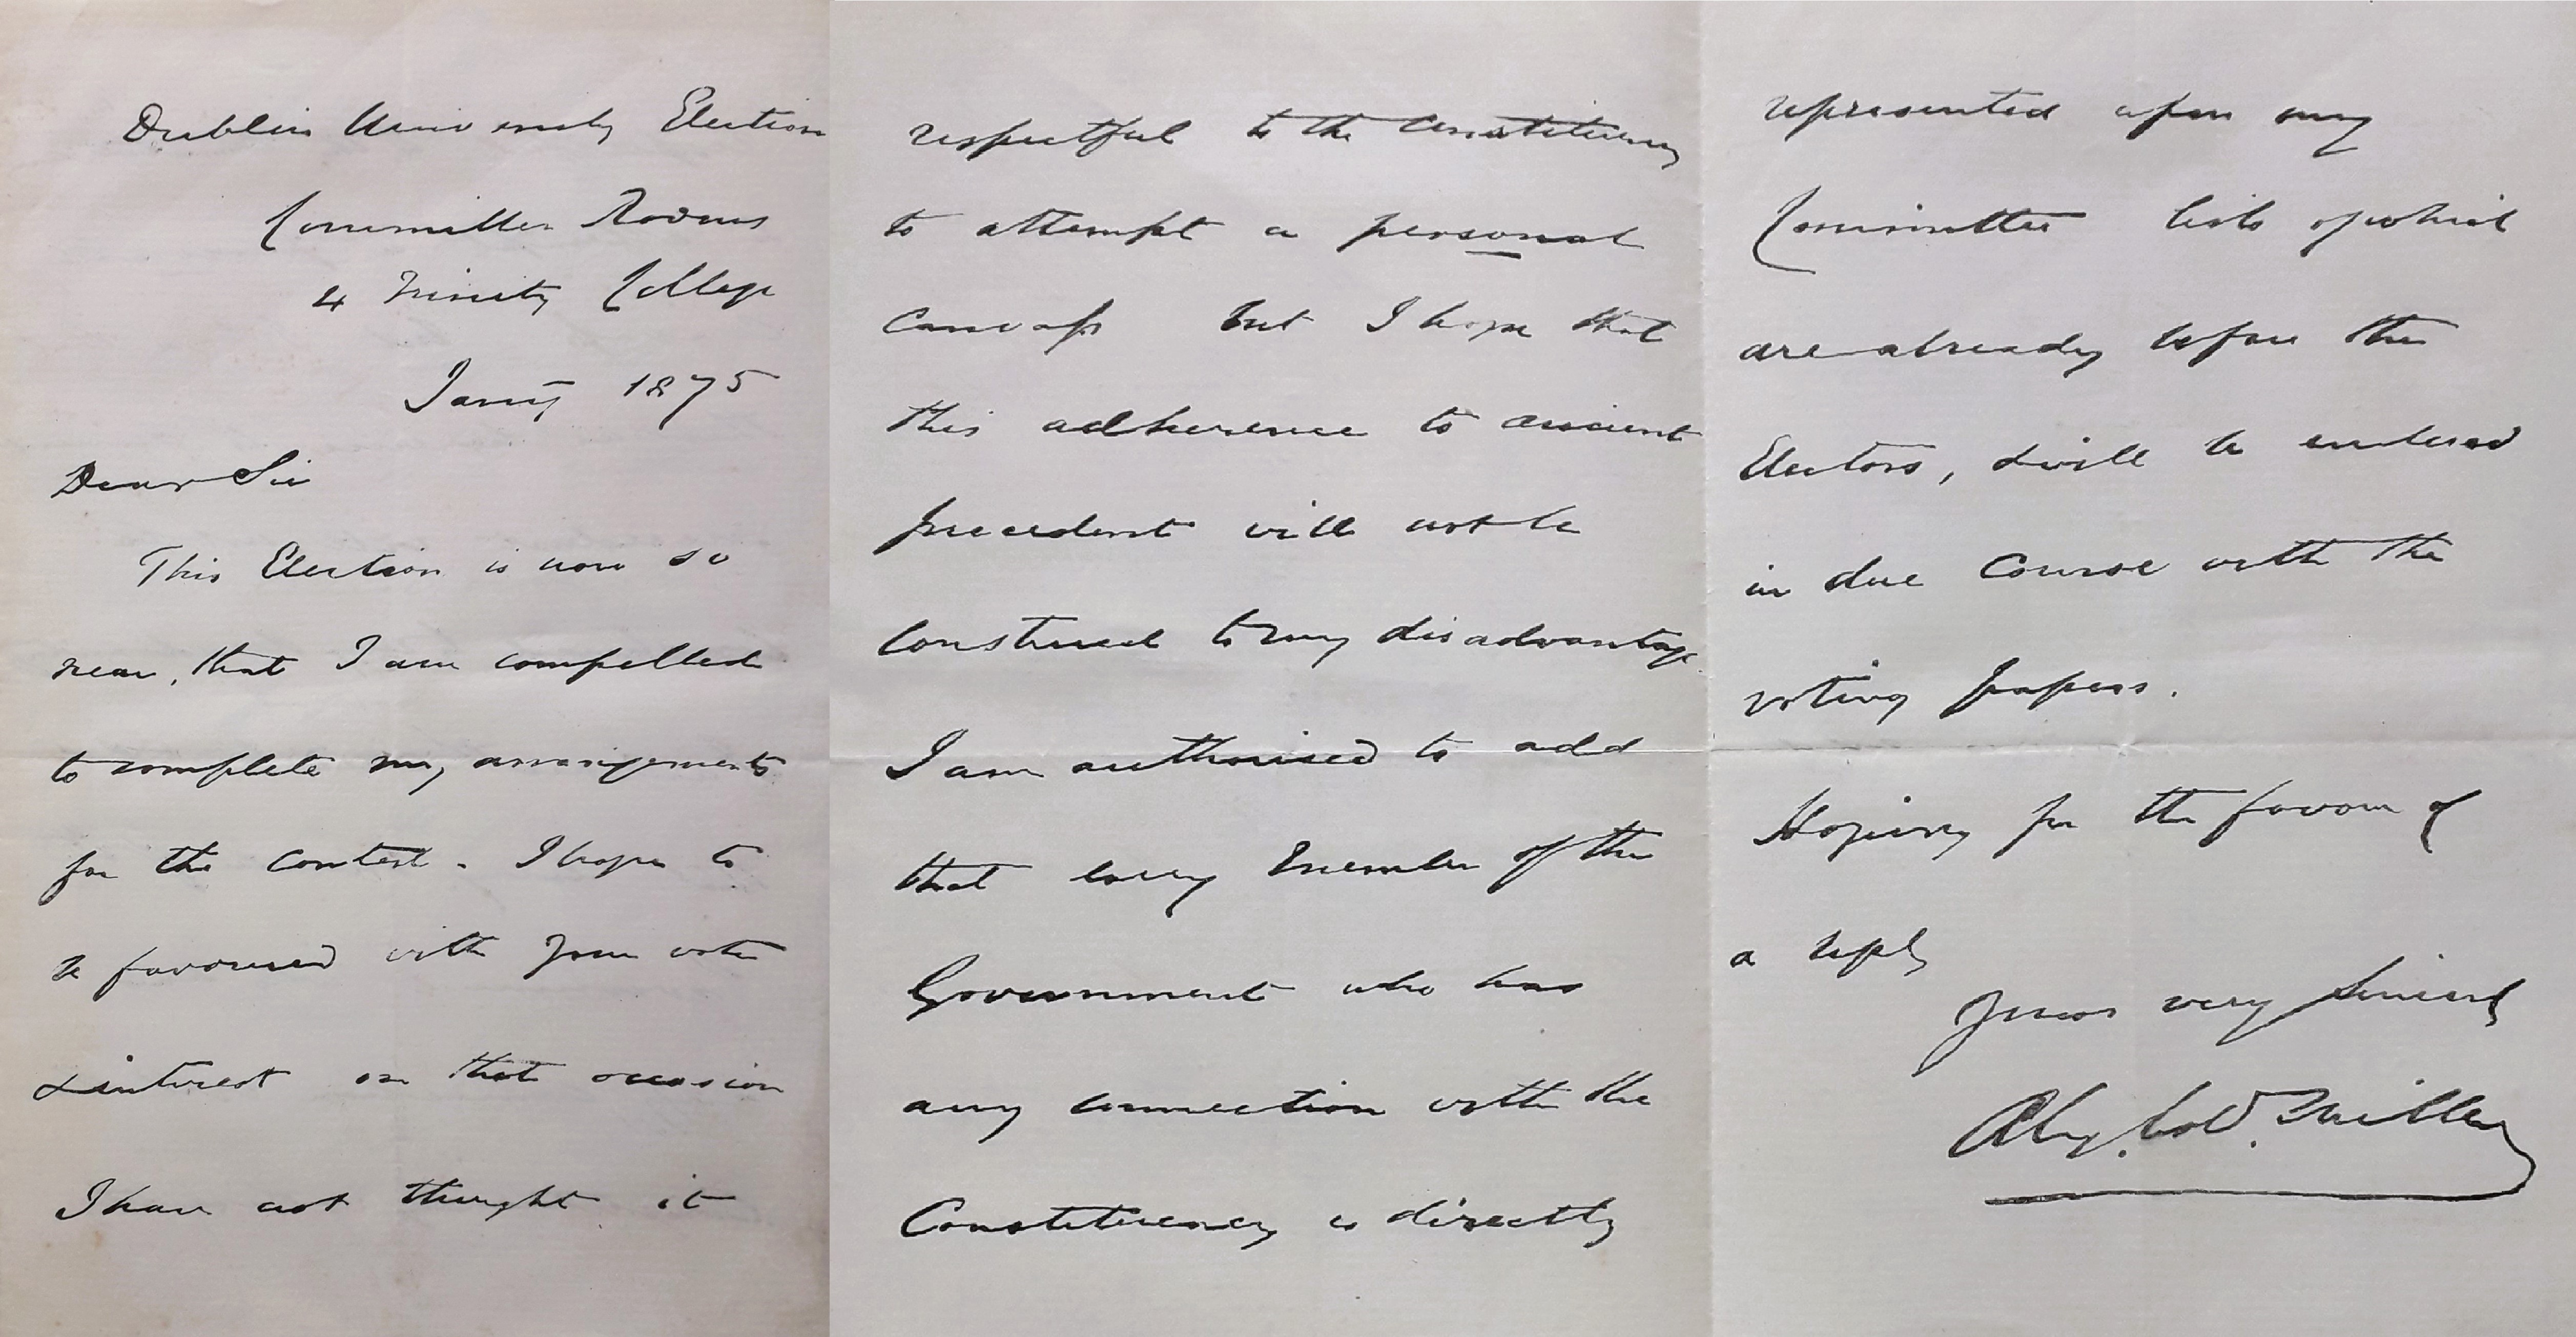 Dublin University Election
Committee Rooms
4 Trinity College
Jany 1875
Dear Sir
This Election is now so
near, that I am compelled
to complete my arrangements
for the Contest. I hope to
be favoured with your vote
& interest on that occasion
I have not thought it
respectful to the Constituency
to attempt a personal
Canvass but I hope that
this adherence to ancient
precedent will not be
Construed to my disadvantage.
I am authorised to add
that every Member of the
Government who has
any connection with the
Constituency is directly
represented upon my
Committee lists of which
are already before the
Electors, & will be entered
in due Course with the
voting papers.
Hoping for the favour of
a reply
Yours very sincerely
Miller